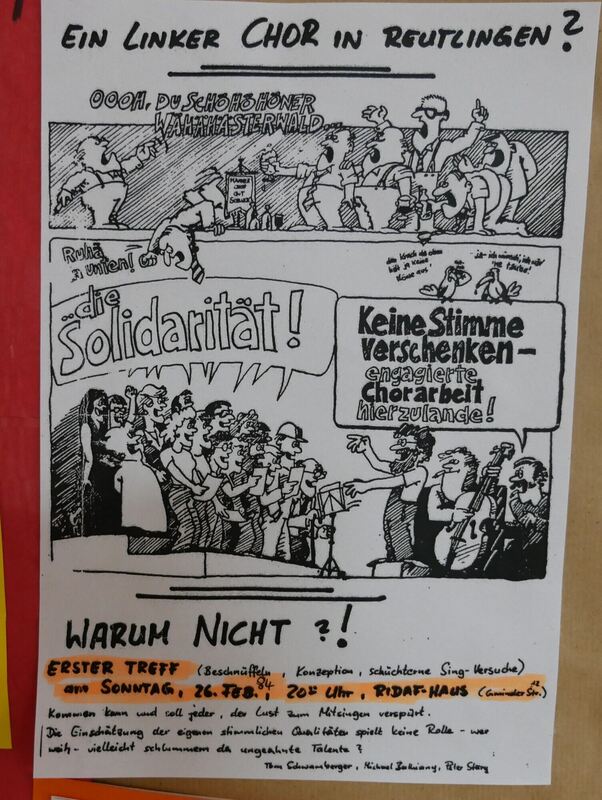 EIN LINKER CHOR IN REUTLINGEN?
OOOH, DU SCHÖHÖHÖNER
WÄHÄHÄSTERWALD..
MÄNNER
CHOR
Ruhä,
da unten!
das Krach da oben
hält ja keine
Möwe aus!
ja- ich wünsch', ich wär'
'ne Taube!
die
Solidarität!
Keine Stimme
verschenken-
engagierte
Chorarbeit
hierzulande!
WARUM NICHT ?!
ERSTER TREFF (Beschnüffeln, Konzeption, schüchterne Sing-Versuche)
am SONNTAG, 26. FEB. 84, 20°° Uhr, RIDAF-HAUS (Gminder Str. 12)
Kommen kann und soll jeder, der Lust zum Mitsingen verspürt.
Die Einschätzung der eigenen stimmlichen Qualitäten spielt keine Rolle - wer
weiß - vielleicht schlummern da ungeahnte Talente?
Tom Schwamberger, Michael Peter